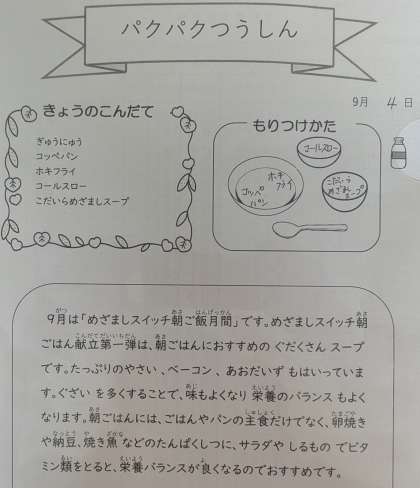 パクパクつうしん
9月 4日
きょうのこんだて
ぎゅうにゅう
コッペパン
ホキフライ
コールスロー
こだいらめざましスープ
もりつけかた
コールスロー
ホキ
フライ
コッペ
パン
こだいら
めざまし
スープ
9月は「めざましスイッチ朝ご飯月間」です。めざましスイッチ朝
ごはん献立第一弾は、朝ごはんにおすすめの ぐだくさん スープ
です。たっぷりのやさい 、ベーコン 、 あおだいず もはいっていま
す。ぐざい を多くすることで、味もよくなり 栄養のバランス もよく
なります。朝ごはんには、ごはんやパンの主食だけでなく、卵焼き
や納豆、焼き魚 などのたんぱくしつに、サラダや しるもの でビタ
ミン類をとると、栄養バランスが良くなるのでおすすめです。